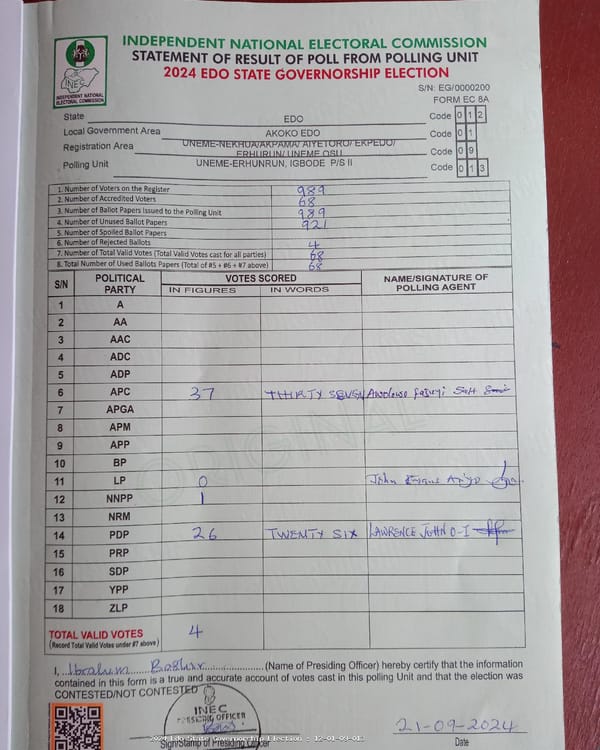 INDEPENDENT NATIONAL ELECTORAL COMMISSION
STATEMENT OF RESULT OF POLL FROM POLLING UNIT
2024 EDO STATE GOVERNORSHIP ELECTION
INEC
INDEPENDENT NATIONAL
ELECTORAL COMMISSION
S/N: EG/0000200
FORM EC 8A
State EDO Code 0 1 2
Local Government Area AKOKO EDO Code 0 1
Registration Area UNEME-NEKHUA/AKPAMA/ AIYETORO/ EKPEDO/ ERHURUN/ UNEME OSU Code 0 9
Polling Unit UNEME-ERHUNRUN, IGBODE P/S II Code 0 1 3
1. Number of Voters on the Register 989
2. Number of Accredited Voters 68
3. Number of Ballot Papers Issued to the Polling Unit 989
4. Number of Unused Ballot Papers 921
5. Number of Spoiled Ballot Papers
6. Number of Rejected Ballots 4
7. Number of Total Valid Votes (Total Valid Votes cast for all parties) 68
8. Total Number of Used Ballots Papers (Total of #5 + #6 + #7 above) 68
S/N POLITICAL PARTY VOTES SCORED NAME/SIGNATURE OF POLLING AGENT
IN FIGURES IN WORDS
1 A
2 AA
3 AAC
4 ADC
5 ADP
6 APC 37 THIRTY SEVEN
7 APGA
8 APM
9 APP
10 BP
11 LP 0 John
12 NNPP 1
13 NRM
14 PDP 26 TWENTY SIX LAWRENCE JOHN O-I
15 PRP
16 SDP
17 YPP
18 ZLP
ORIGINAL
TOTAL VALID VOTES 4
(Record Total Valid Votes under #7 above)
I, Ibrahim Bashir (Name of Presiding Officer) hereby certify that the information
contained in this form is a true and accurate account of votes cast in this polling Unit and that the election was
CONTESTED/NOT CONTESTED
INEC
PRESIDING OFFICER
21-09-2024
Sign/Stamp of Presiding Officer Date
2024 Edo State Governorship Election - 12-01-09-013